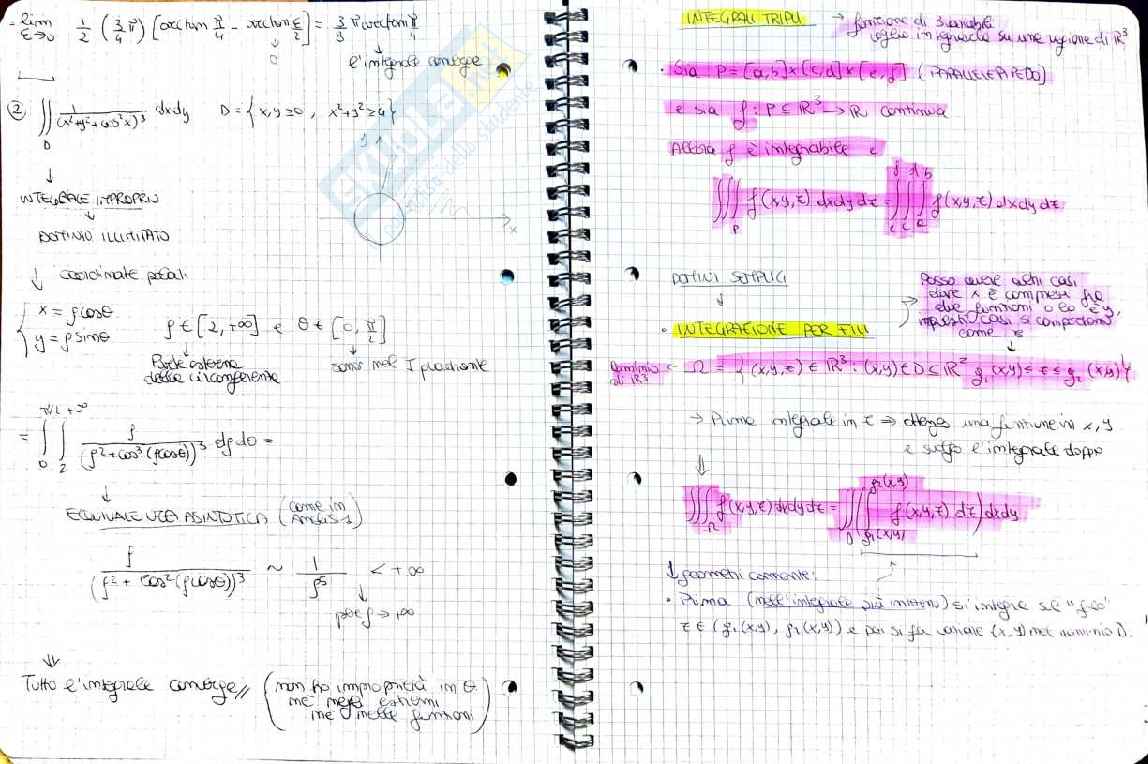 - lim ε→0 1/2 (3/4 π) [arctan π/4 - arctan ε/2] = 3/8 π arctan π/4
0
l'integrale converge
② ∬_D 1/(x²+y²+cos²x)³ dxdy D = {x,y ≥ 0, x²+y² ≥ 4}
INTEGRALE IMPROPRIO
DOMINIO ILLIMITATO
↓ coordinate polari
{ x = ρcosθ
y = ρsinθ
ρ ∈ [2, +∞] e θ ∈ [0, π/2]
Parte esterna
della circonferenza
sono nel I quadrante
= ∫_0^{π/2} ∫_2^{+∞} ρ/(ρ²+cos²(ρcosθ))³ dρdθ =
EQUIVALENZA ASINTOTICA (come in
ANALISI 1)
ρ/(ρ²+cos²(ρcosθ))³ ~ 1/ρ⁵ < +∞
per ρ→+∞
Tutto l'integrale converge // (non ho improprietà in θ
né negli estremi
né nelle funzioni)
y
x
SKUOLA.NET
INTEGRALI TRIPLI → funzione di 3 variabili
voglio integrarla su una regione di ℝ³
• Sia P = [a,b]×[c,d]×[e,f] (PARALLELEPIPEDO)
e sia f: P ⊆ ℝ³ → ℝ continua
Allora f è integrabile e
∭_P f(x,y,z) dxdydz = ∫_e^f ∫_c^d ∫_a^b f(x,y,z) dxdydz
DOMINI SEMPLICI
Posso avere altri casi
dove x è compresa fra
due funzioni o lo è y,
in questi casi si comportano
come z
• INTEGRAZIONE PER FILI
Dominio di ℝ³ ← Ω = {(x,y,z) ∈ ℝ³ : (x,y) ∈ D ⊆ ℝ², g₁(x,y) ≤ z ≤ g₂(x,y)}
→ Prima integrali in z ⇒ ottengo una funzione in x,y
e svolgo l'integrale doppio
∭_Ω f(x,y,z) dxdydz = ∬_D (∫_{g₁(x,y)}^{g₂(x,y)} f(x,y,z) dz) dxdy
↓ geometricamente:
• Prima (nell'integrale più interno) si integra sul "filo"
z ∈ (g₁(x,y), g₂(x,y)) e poi si fa variare (x,y) nel dominio D.